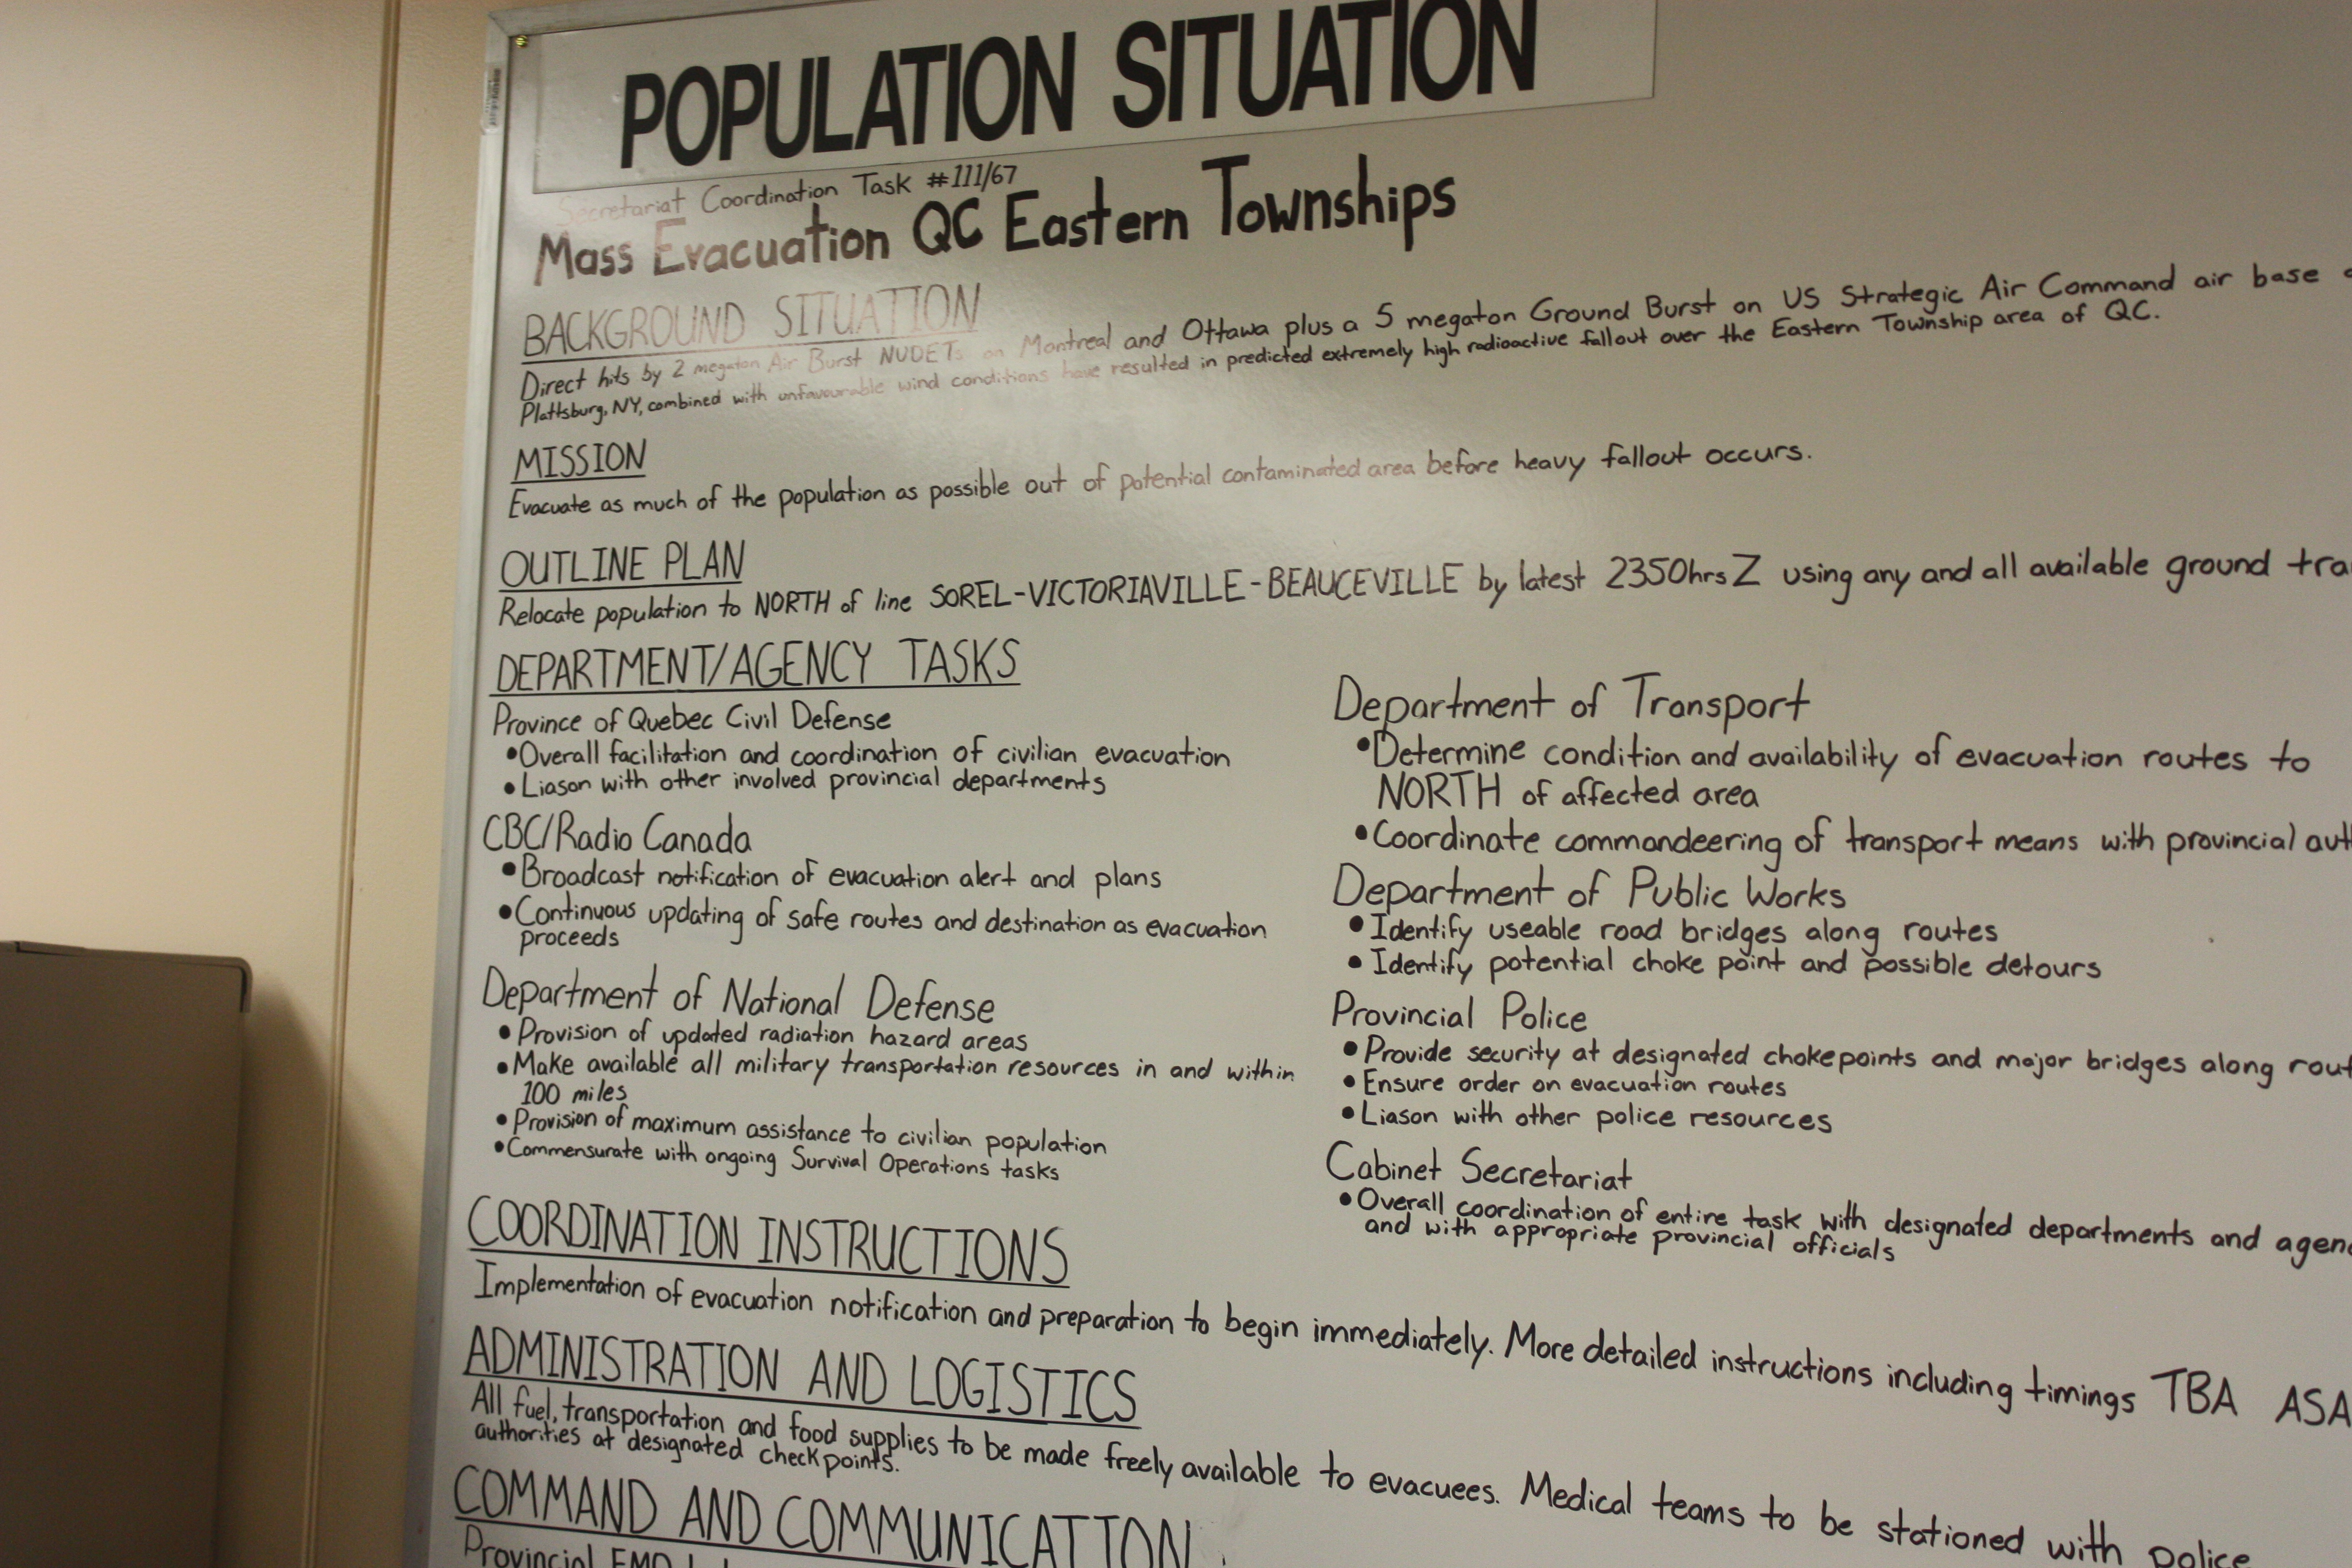 POPULATION SITUATION
Secretariat Coordination Task #111/67
Mass Evacuation QC Eastern Townships
BACKGROUND SITUATION
Direct hits by 2 megaton Air Burst NUDETs on Montreal and Ottawa plus a 5 megaton Ground Burst on US Strategic Air Command air base
Plattsburg, NY, combined with unfavourable wind conditions have resulted in predicted extremely high radioactive fallout over the Eastern Township area of QC.
MISSION
Evacuate as much of the population as possible out of potential contaminated area before heavy fallout occurs.
OUTLINE PLAN
Relocate population to NORTH of line SOREL-VICTORIAVILLE-BEAUCEVILLE by latest 2350hrs Z using any and all available ground tra
DEPARTMENT/AGENCY TASKS
Province of Quebec Civil Defense
•Overall facilitation and coordination of civilian evacuation
•Liason with other involved provincial departments
CBC/Radio Canada
•Broadcast notification of evacuation alert and plans
•Continuous updating of safe routes and destination as evacuation
proceeds
Department of National Defense
•Provision of updated radiation hazard areas
•Make available all military transportation resources in and within
100 miles
•Provision of maximum assistance to civilian population
•Commensurate with ongoing Survival Operations tasks
Department of Transport
•Determine condition and availability of evacuation routes to
NORTH of affected area
•Coordinate commandeering of transport means with provincial aut
Department of Public Works
•Identify useable road bridges along routes
•Identify potential choke point and possible detours
Provincial Police
•Provide security at designated chokepoints and major bridges along rout
•Ensure order on evacuation routes
•Liason with other police resources
Cabinet Secretariat
•Overall coordination of entire task with designated departments and agen
and with appropriate provincial officials
COORDINATION INSTRUCTIONS
Implementation of evacuation notification and preparation to begin immediately. More detailed instructions including timings TBA ASA
ADMINISTRATION AND LOGISTICS
All fuel, transportation and food supplies to be made freely available to evacuees. Medical teams to be stationed with police
authorities at designated checkpoints.
COMMAND AND COMMUNICATION
Provincial EMO